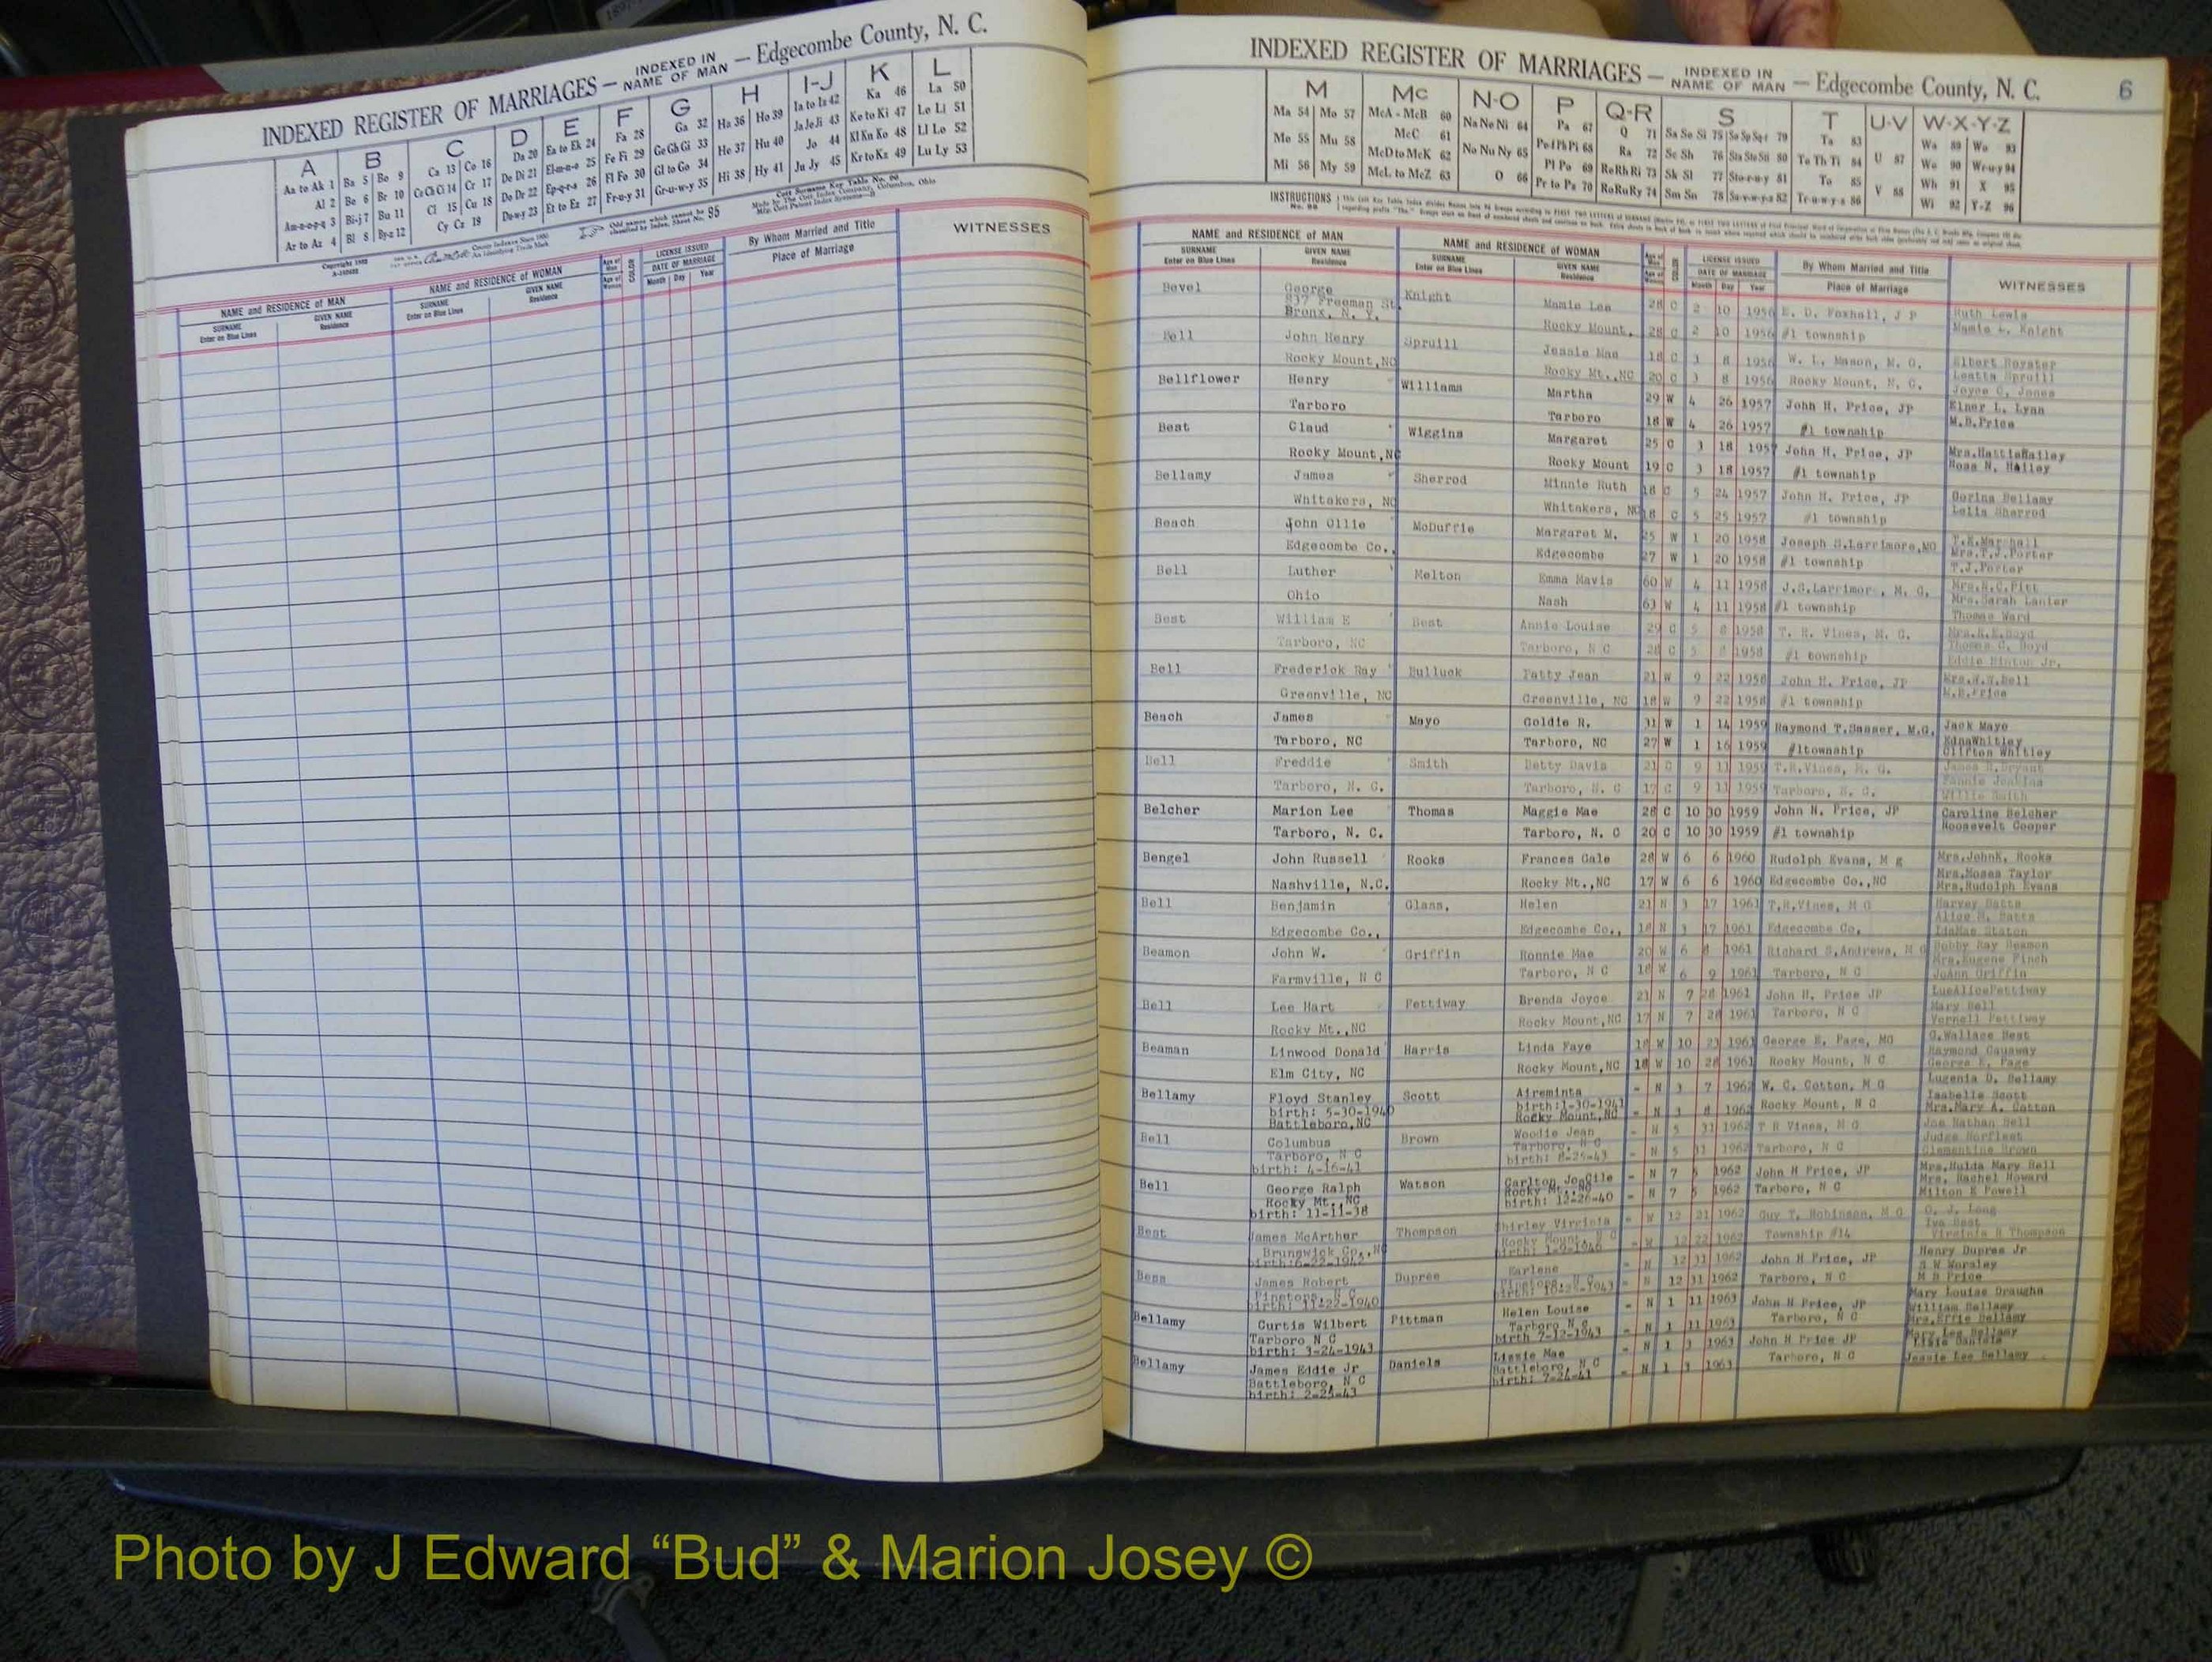 INDEXED REGISTER OF MARRIAGES — INDEXED IN NAME OF MAN — Edgecombe County, N. C.
A B C D E F G H I-J K L
Aa to Ak 1 Ba 5 Be 9 Ca 13 Co 16 Da 20 Ea to Ek 24 Fa 28 Ga 32 Ha 36 Ho 39 Ia to Iz 42 Ka 46 La 50
Al 2 Be 6 Br 10 Ce Ch Ci 14 Cr 17 De Di 21 El-m-n-o 25 Fe Fi 29 Ge Gh Gi 33 He 37 Hu 40 Ja Je Ji 43 Ke to Ki 47 Le Li 51
Am-n-o-p-q 3 Bi-j 7 Bu 11 Cl 15 Cu 18 Do Dr 22 Ep-q-r-s 26 Fl Fo 30 Gl to Go 34 Hi 38 Hy 41 Jo 44 Kl Kn Ko 48 Ll Lo 52
Ar to Az 4 Bl 8 By-z 12 Cy Cz 19 Du-w-y 23 Et to Ez 27 Fr-u-y 31 Gr-u-w-y 35 Ju Jy 45 Kr to Kz 49 Lu Ly 53
NAME and RESIDENCE of MAN NAME and RESIDENCE of WOMAN LICENSE ISSUED By Whom Married and Title WITNESSES
SURNAME GIVEN NAME SURNAME GIVEN NAME COLOR DATE OF MARRIAGE Place of Marriage
Enter on Blue Lines Residence Enter on Blue Lines Residence Month Day Year
INDEXED REGISTER OF MARRIAGES — INDEXED IN NAME OF MAN — Edgecombe County, N. C. 6
M Mc N-O P Q-R S T U-V W-X-Y-Z
Ma 54 Mo 57 McA - McB 60 Na Ne Ni 64 Pa 67 Q 71 Sa Se Si 75 So Sp Sq-r 79 Ta 83 Wa 89 Wo 93
Me 55 Mu 58 McC 61 No Nu Ny 65 Pe Pf Ph Pi 68 Ra 72 Sc Sh 76 Sta Ste Sti 80 Te Th Ti 84 U 87 We 90 Wr-u-y 94
Mi 56 My 59 McD to McK 62 O 66 Pl Po 69 Re Rh Ri 73 Sk Sl 77 Sto-r-u-y 81 To 85 V 88 Wh 91 X 95
McL to McZ 63 Pr to Pz 70 Ro Ru Ry 74 Sm Sn 78 Su-v-w-y-z 82 Tr-u-w-y-z 86 Wi 92 Y-Z 96
NAME and RESIDENCE of MAN NAME and RESIDENCE of WOMAN LICENSE ISSUED By Whom Married and Title WITNESSES
SURNAME GIVEN NAME SURNAME GIVEN NAME DATE OF MARRIAGE Place of Marriage
Enter on Blue Lines Residence Enter on Blue Lines Residence Month Day Year
Bevel George Knight Mamie Lee 28 C 2 10 1956 E. D. Foxhall, J P Ruth Lewis
837 Freeman St. Bronx, N. Y. Rocky Mount, 28 C 2 10 1956 #1 township Mamie L. Knight
Bell John Henry Spruill Jessie Mae 18 C 3 8 1956 W. L. Mason, M. G. Elbert Royster
Rocky Mount,NC Rocky Mt.,NC 20 C 3 8 1956 Rocky Mount, N. C. Leatta Spruill
Joyce C. Jones
Bellflower Henry Williams Martha 29 W 4 26 1957 John H. Price, JP Elner L. Lynn
Tarboro Tarboro 18 W 4 26 1957 #1 township M.B.Price
Beat Claud Wiggins Margaret 25 C 3 18 1957 John H. Price, JP Mrs.HattieHailey
Rocky Mount,NC Rocky Mount 19 C 3 18 1957 #1 township Ross N. Hailey
Bellamy James Sherrod Minnie Ruth 18 C 5 24 1957 John H. Price, JP Dorina Bellamy
Whitakers, NC Whitakers, NC 18 C 5 25 1957 #1 township Lelia Sherrod
Beach John Ollie McDuffie Margaret M. 25 W 1 20 1958 Joseph S.Larrimore,MG T.E.Marshall
Edgecombe Co., Edgecombe 27 W 1 20 1958 #1 township Mrs.T.J.Porter
T.J.Porter
Bell Luther Melton Emma Mavis 60 W 4 11 1958 J.S.Larrimor , M. G. Mrs.R.C.Pitt
Ohio Nash 63 W 4 11 1958 #1 township Mrs.Sarah Lanier
Thomas Ward
Best William E Best Annie Louise 29 C 5 8 1958 T. R. Vines, M. G.
Tarboro, NC Tarboro, N C 28 C 5 8 1958 #1 township Thomas C. Boyd
Eddie Hinton Jr.
Bell Frederick Ray Bulluck Patty Jean 21 W 9 22 1958 John H. Price, JP
Greenville, NC Greenville, NC 18 W 9 22 1958 #1 township M.B.Price
Beach James Mayo Goldie R. 31 W 1 14 1959 Raymond T.Sasser, M.G. Jack Mayo
Tarboro, NC Tarboro, NC 27 W 1 16 1959 #1township EdnaWhitley
Clifton Whitley
Bell Freddie Smith Betty Davis 21 C 9 11 1959 T.R.Vines, M. G. James R.Bryant
Tarboro, N. C. Tarboro, N. C 17 C 9 11 1959 Tarboro, N. C. Fannie Jenkins
Willie Smith
Belcher Marion Lee Thomas Maggie Mae 28 C 10 30 1959 John H. Price, JP Caroline Belcher
Tarboro, N. C. Tarboro, N. C 20 C 10 30 1959 #1 township Roosevelt Cooper
Bengel John Russell Rooks Frances Gale 28 W 6 6 1960 Rudolph Evans, M g Mrs.JohnK. Rooks
Nashville, N.C. Rocky Mt.,NC 17 W 6 6 1960 Edgecombe Co.,NC Mrs.Moses Taylor
Mrs.Rudolph Evans
Bell Benjamin Glass, Helen 21 N 3 17 1961 T.R.Vines, M G Harvey Batts
Edgecombe Co., Edgecombe Co., 18 N 3 17 1961 Edgecombe Co. Alice H. Batts
IdaMae Staton
Beamon John W. Griffin Ronnie Mae 20 W 6 8 1961 Richard S.Andrews, M G Bobby Ray Beamon
Farmville, N C Tarboro, N C 18 W 6 9 1961 Tarboro, N C Mrs.Eugene Finch
JoAnn Griffin
Bell Lee Hart Pettiway Brenda Joyce 21 N 7 28 1961 John H. Price JP LueAlicePettiway
Rocky Mt.,NC Rocky Mount,NC 17 N 7 28 1961 Tarboro, N C Mary Bell
Vernell Pettiway
Beaman Linwood Donald Harris Linda Faye 18 W 10 23 1961 George E. Page, MG G.Wallace Best
Elm City, NC Rocky Mount,NC 18 W 10 28 1961 Rocky Mount, N C Raymond Causway
George E. Page
Bellamy Floyd Stanley Scott Aireminta - N 3 7 1962 W. C. Cotton, M G Lugenia D. Bellamy
birth: 5-30-1940 birth:1-30-1941 Isabelle Scott
Battleboro,NC Rocky Mount,NC - N 3 8 1962 Rocky Mount, N C Mrs.Mary A. Cotton
Bell Columbus Brown Woodie Jean - N 5 31 1962 T R Vines, M G Joe Nathan Bell
Tarboro, N C Tarboro, N C Judge Norfleet
birth: 4-16-41 birth: 8-25-43 - N 5 31 1962 Tarboro, N C Clementine Brown
Bell George Ralph Watson Carlton JoeGile - N 7 5 1962 John H Price, JP Mrs.Hulda Mary Bell
Rocky Mt., NC Rocky Mt., NC Mrs. Rachel Howard
birth: 11-11-38 birth: 12-26-40 - N 7 5 1962 Tarboro, N C Milton E Powell
Best James McArther Thompson Shirley Virginia - W 12 21 1962 Guy T. Robinson, M G O. J. Long
Brunswick Co.,NC Rocky Mount, N C Iva Best
birth:6-22-1942 birth: 1-9-1946 - W 12 22 1962 Township #14 Virginia H Thompson
Bess James Robert Dupree Earlene - N 12 31 1962 John H Price, JP Henry Dupree Jr
Pinetops, N C Pinetops, N C S W Worsley
birth: 11-22-1940 birth: 10-25-1943 - N 12 31 1962 Tarboro, N C M B Price
Bellamy Curtis Wilbert Pittman Helen Louise - N 1 11 1963 John H Price, JP Mary Louise Draughn
Tarboro N C Tarboro N C William Bellamy
birth: 3-24-1943 birth 7-12-1943 - N 1 11 1963 Tarboro, N C Mrs.Effie Bellamy
Bellamy James Eddie Jr Daniels Lissie Mae - N 1 3 1963 John H Price JP Mary Lee Bellamy
Battleboro, N C Battleboro, N C Elsie Daniels
birth: 2-25-43 birth: 7-24-41 - N 1 3 1963 Tarboro, N C Jessie Lee Bellamy
Photo by J Edward “Bud” & Marion Josey ©